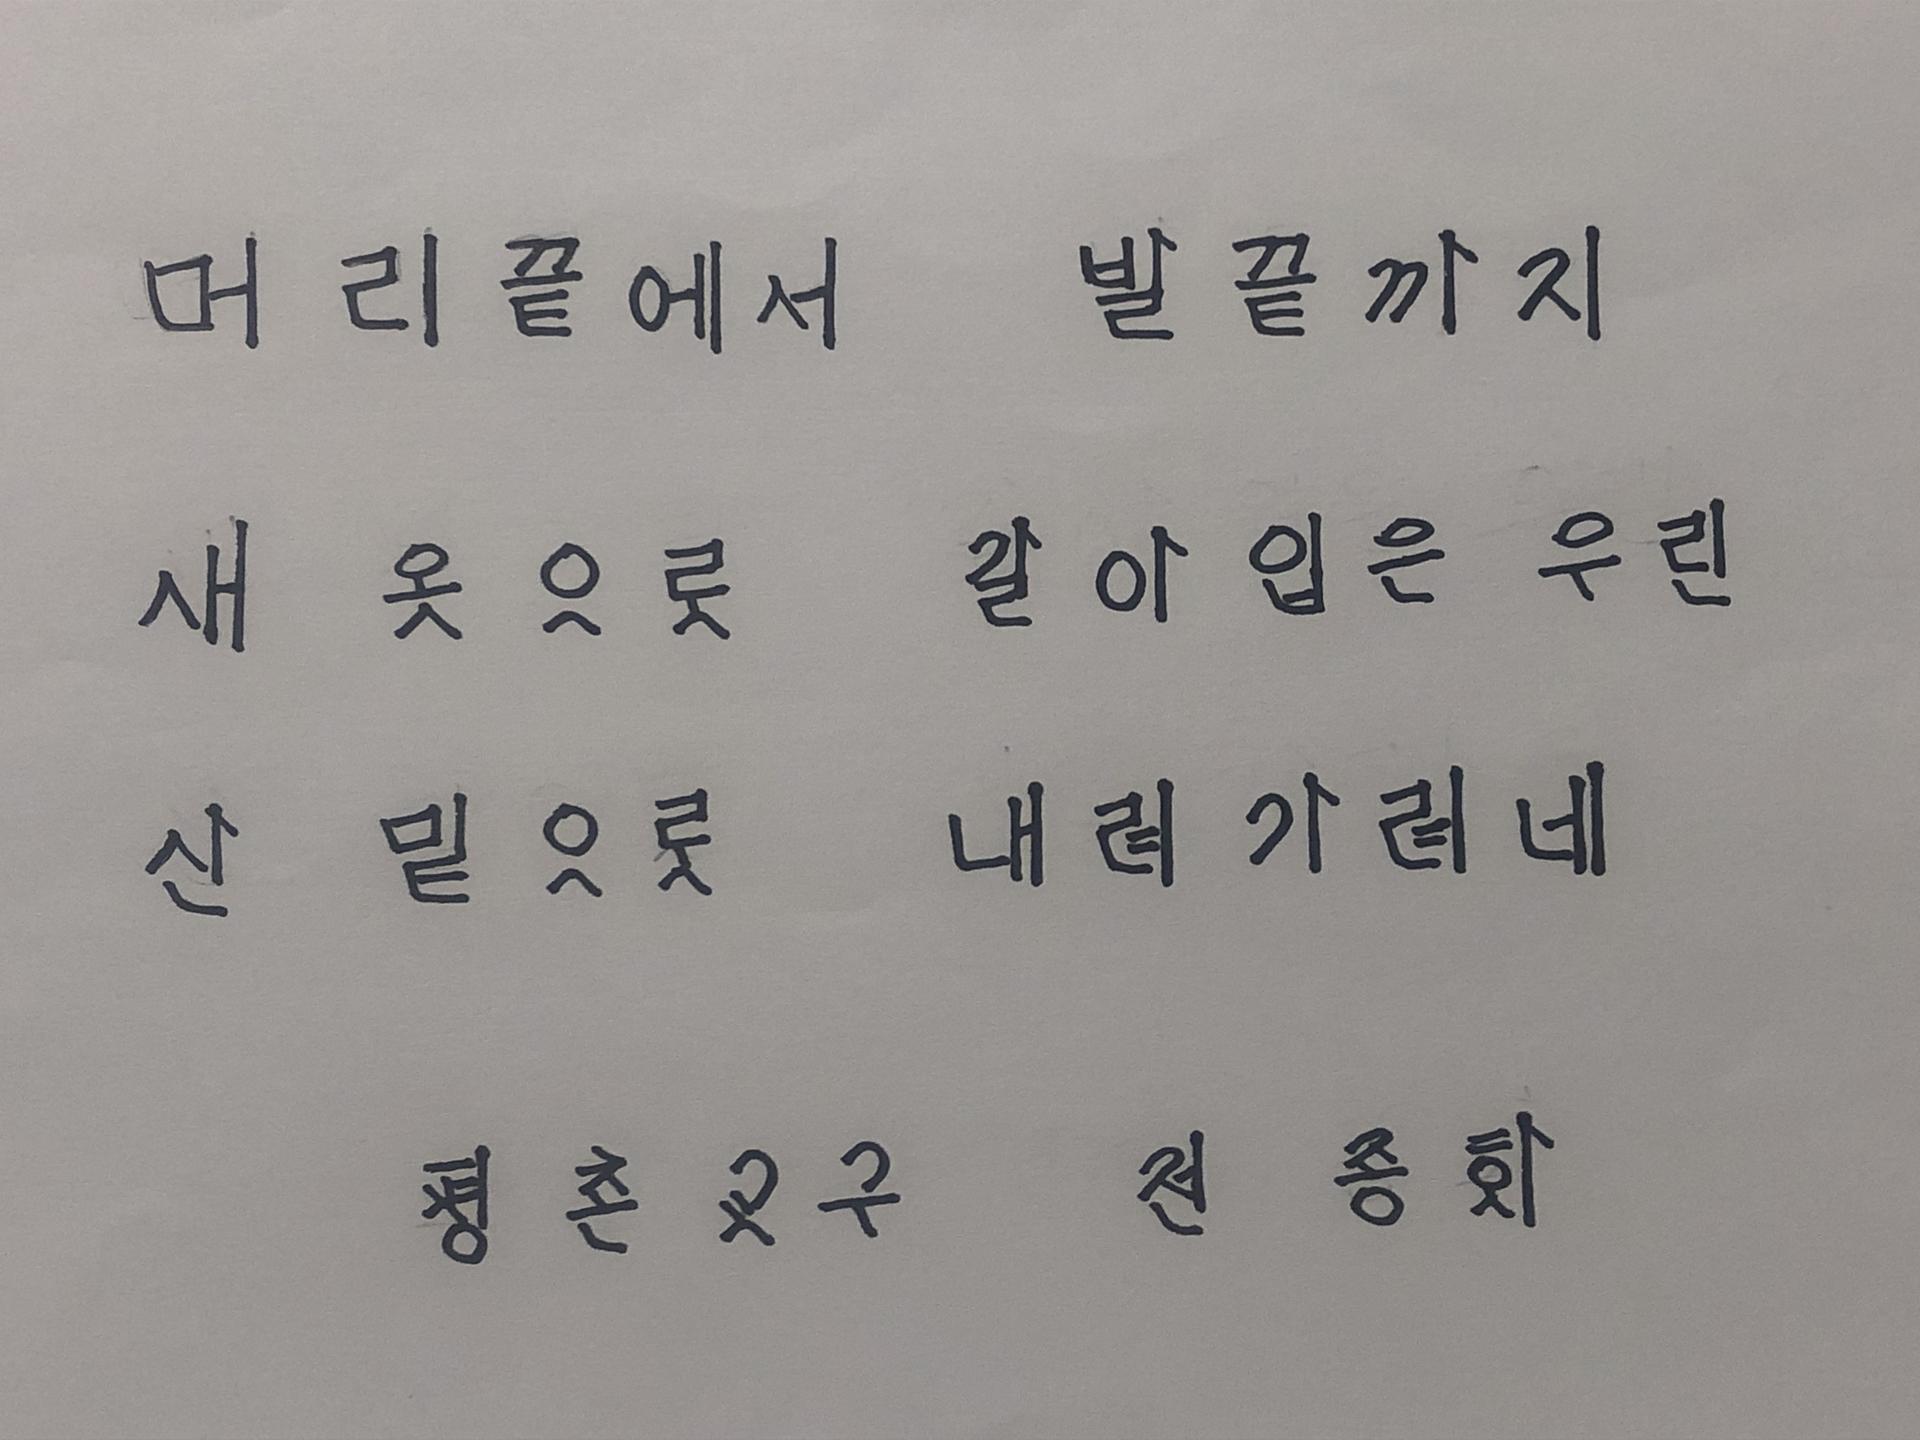 머리끝에서 발끝까지
새 옷으로 갈아입은 우린
산 밑으로 내려가려네
평촌교구 전증화